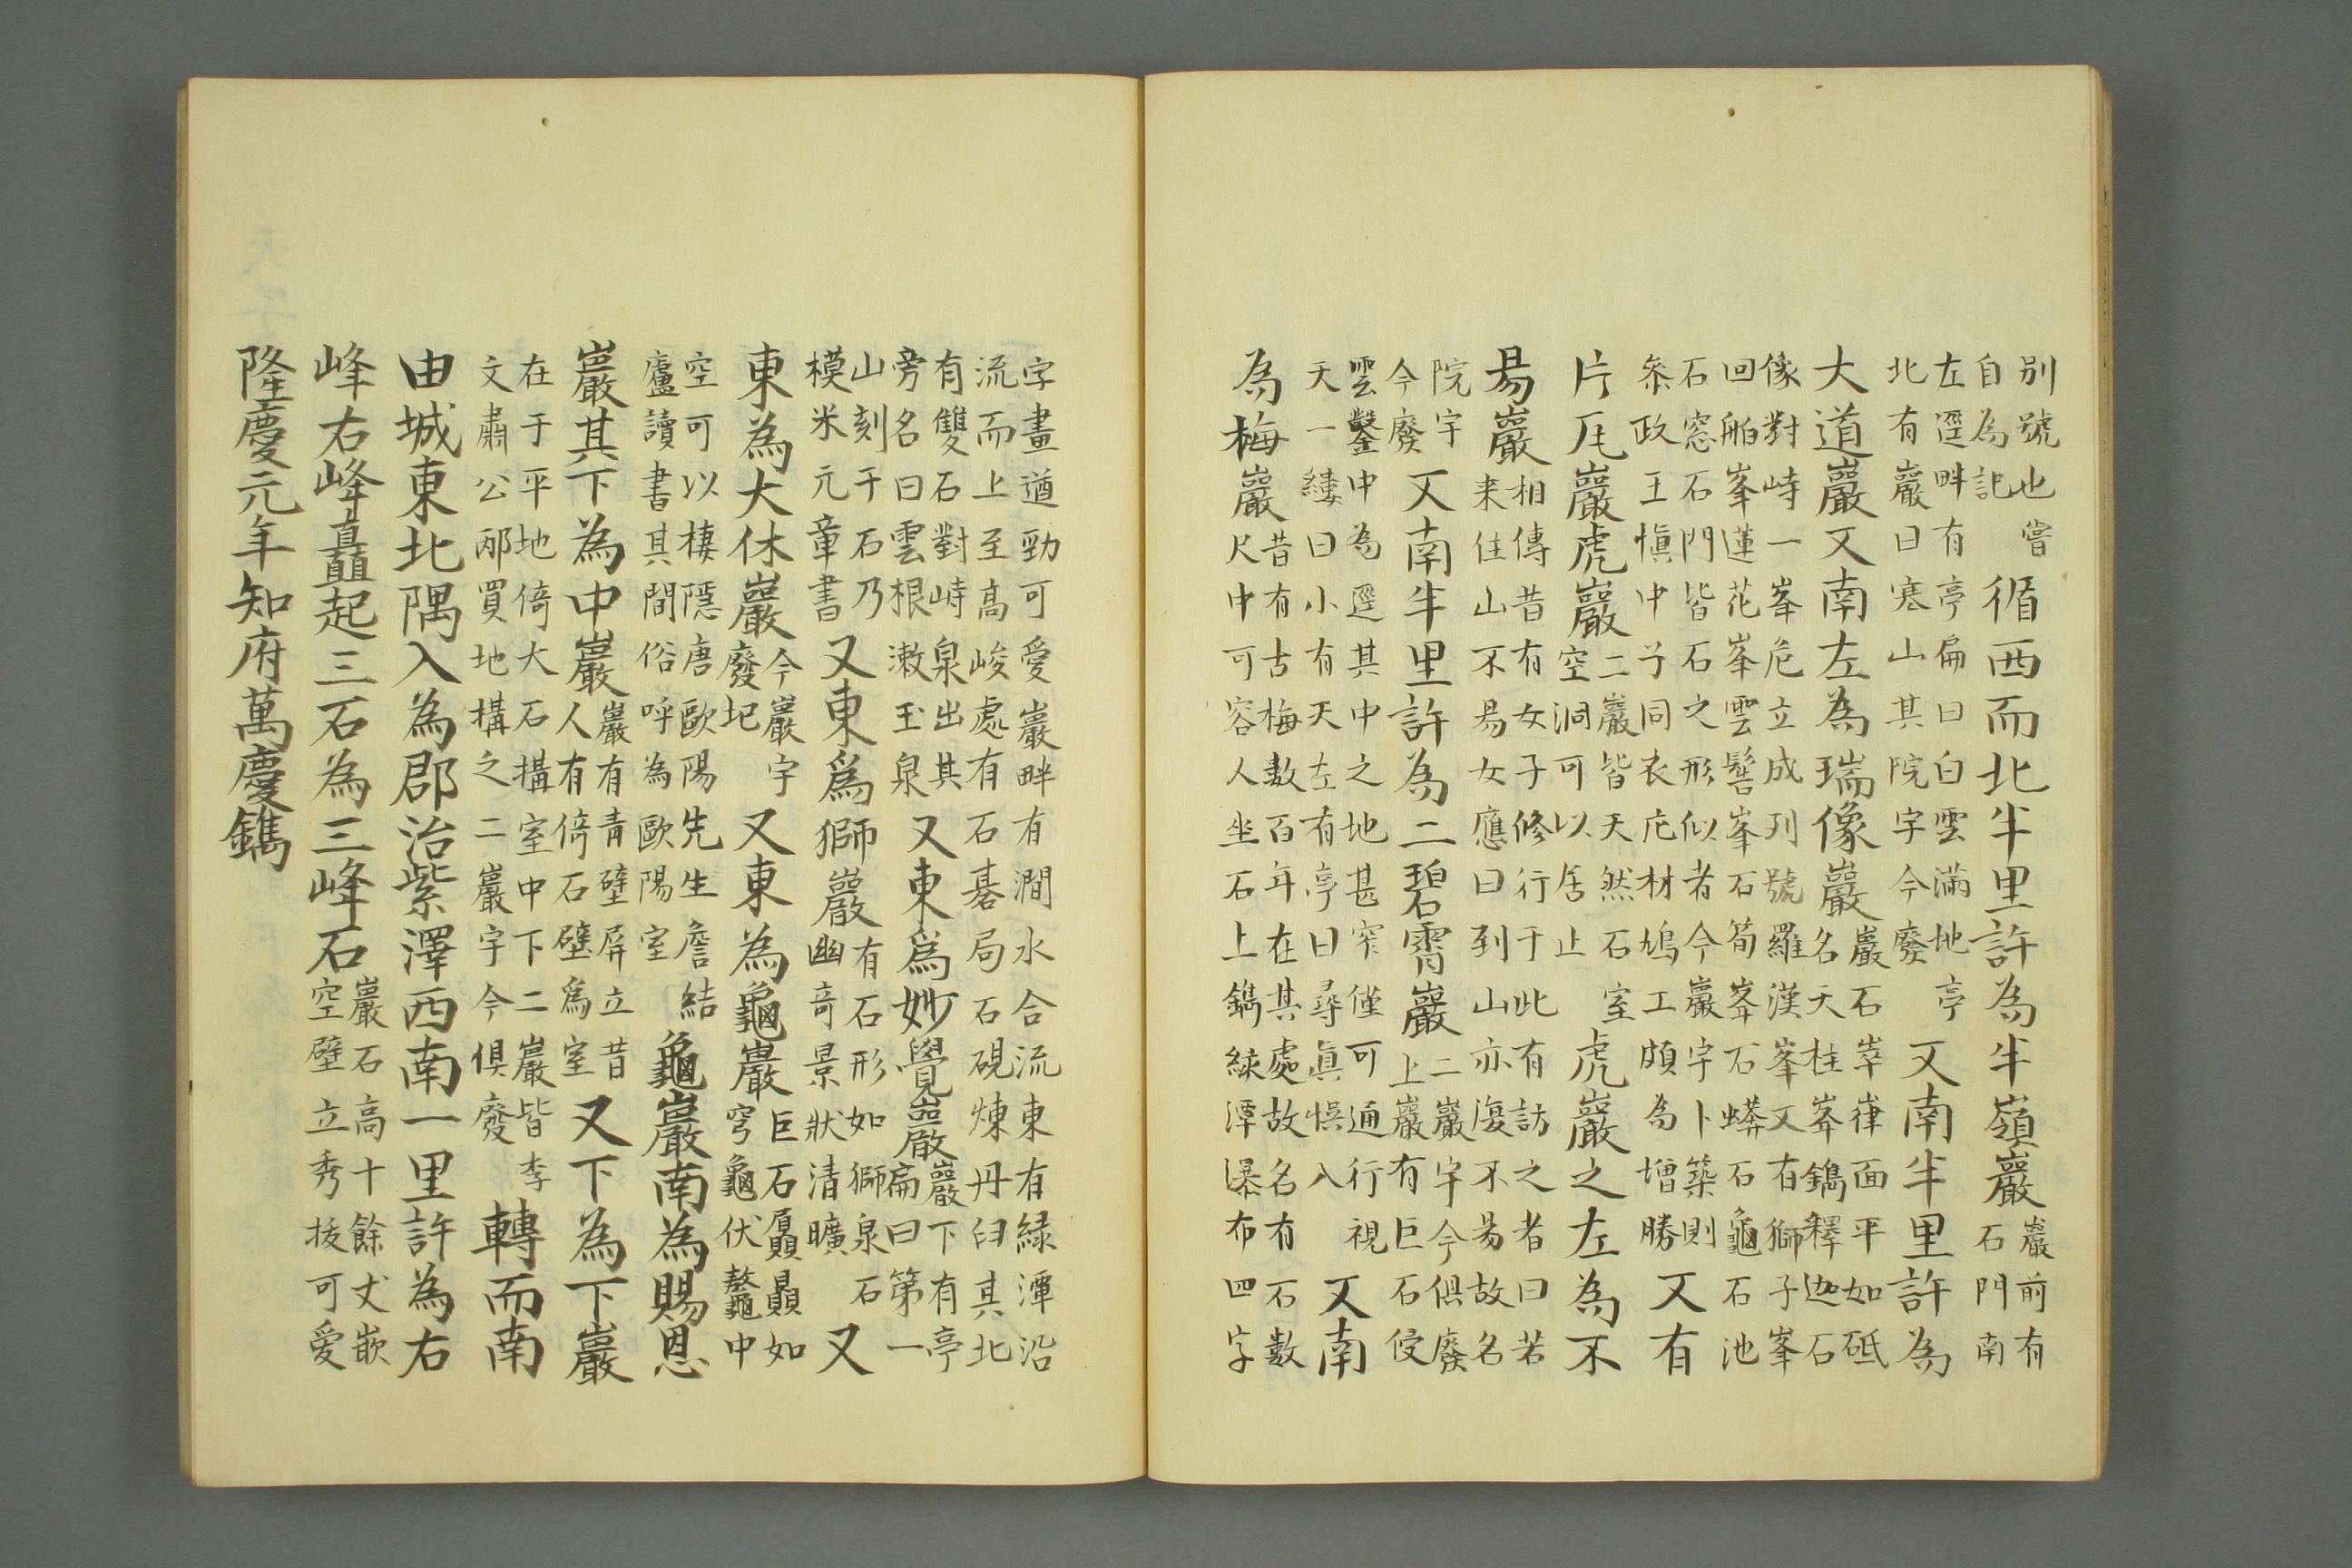 別號也嘗
自為記
循西而北半里許為半嶺巖
巖前有
石門南
左逕畔有亭扁曰白雲滿地亭
北有巖曰寒山其院宇今廢
又南半里許為
大道巖又南左為瑞像巖
巖石崒嵂面平如砥
名天柱峯鐫釋迦石
像對峙一峯危立成列號羅漢峯又有獅子峯
回舶峯蓮花峯雲髻峯石筍峯石蟒石龜石池
石窓石門皆石之形似者今巖宇卜築則
叅政王愼中于同衣庀材鳩工頗為增勝
又有
片瓦巖虎巖
二巖皆天然石室
空洞可以居止
虎巖之左為不
易巖
相傳昔有女子修行于此有訪之者曰若
来住山不易女應曰到山亦復不易故名
院宇
今廢
又南半里許為二碧霄巖
二巖宇今俱廢
上巖有巨石侵
雲鑿中為逕其中之地甚窄僅可通行視
天一縷曰小有天左有亭曰尋眞悞入
又南
為梅巖
昔有古梅数百年在其處故名有石數
尺中可容人坐石上鐫綠潭瀑布四字
字畫遒勁可愛巖畔有澗水合流東有緑潭沿
流而上至高峻處有石碁局石硯煉丹臼其北
有雙石對峙泉出其
旁名曰雲根漱玉泉
又東為妙覺巖
巖下有亭
扁曰第一
山刻于石乃
模米元章書
又東為獅巖
有石形如獅泉石
幽竒景狀清曠
又
東為大休巖
今巖宇
廢圮
又東為龜巖
巨石贔屭如
穹龜伏鼇中
空可以棲隱唐歐陽先生詹結
廬讀書其間俗呼為歐陽室
龜巖南為賜恩
巖其下為中巖
巖有青壁屏立昔
人有倚石壁為室
又下為下巖
在于平地倚大石搆室中下二巖皆李
文肅公邴買地搆之二巖宇今俱廢
轉而南
由城東北隅入為郡治紫澤西南一里許為右
峰右峰矗起三石為三峰石
巖石高十餘丈嵌
空壁立秀拔可愛
隆慶元年知府萬慶鐫